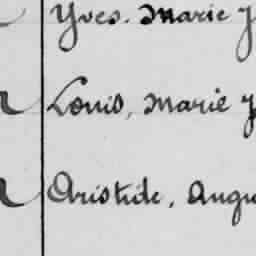 Yves. Marie
Louis, Marie
Aristide, Augu